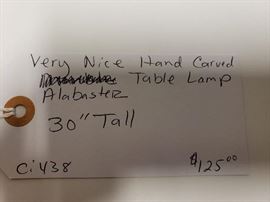 Very Nice Hand Carved
Table Lamp
Alabaster
30" Tall
Ci438
$125.00